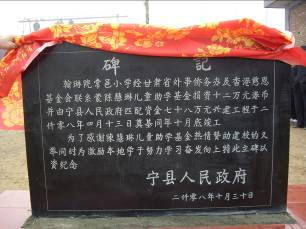 碑記
翰琳院常邑小学经甘肃省外事办公及香港慈恩
基金会联系蒙陈慧琳儿童助学基金捐资十二万元港币
并由宁县人民政府匹配资金七十八万元兴建工程于二
〇〇八年四月十三日奠基同年十月底竣工
为了感谢陈慧琳儿童助学基金热情赞助建校的义
举同时为激励本地学子努力学习奋发向上特此立碑以
资纪念
宁县人民政府
二〇〇八年十月三十日